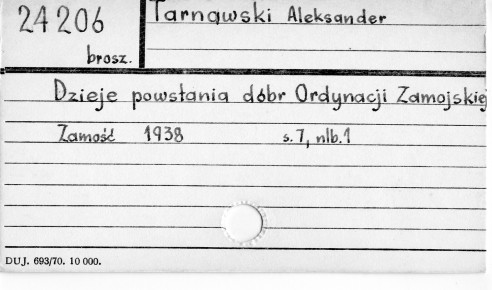 24206
brosz.
Tarnawski Aleksander
Dzieje powstania dóbr Ordynacji Zamojskiej
Zamość 1938 s. 7, nlb. 1
DUJ. 693/70. 10 000.